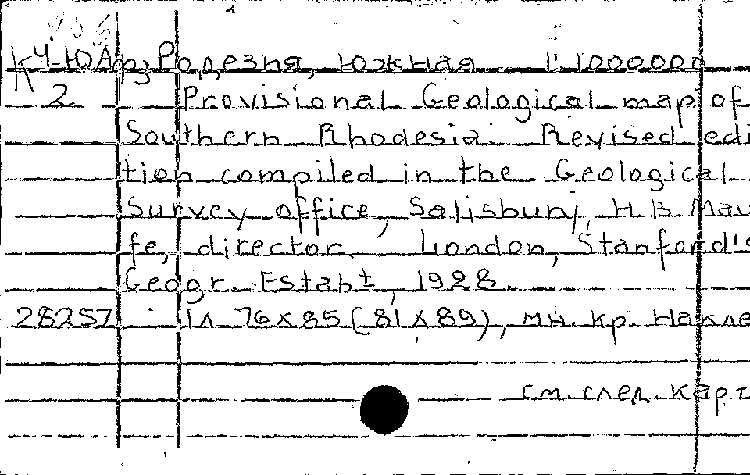 К4-ЮАф; Родезия, Южная 1:1000000
2 Provisional Geological map of
Southern Rhodesia. Revised edi
tion compiled in the Geological
Survey office, Salisbury, H.B. Mau
fe, director. London, Stanford's
Geogr. Establ, 1928.
28257 1 л 76x85 (81x89), мн. кр. Накле
см. след. карт